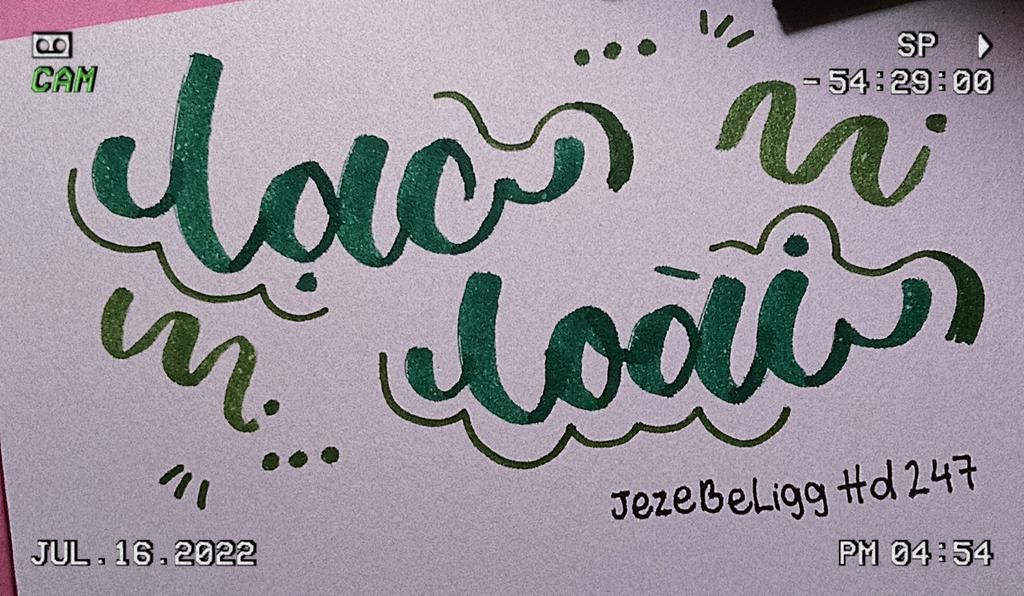 CAM
SP
-54:29:00
lạc
loài
JezeBeLigg Hd 247
JUL.16.2022
PM 04:54